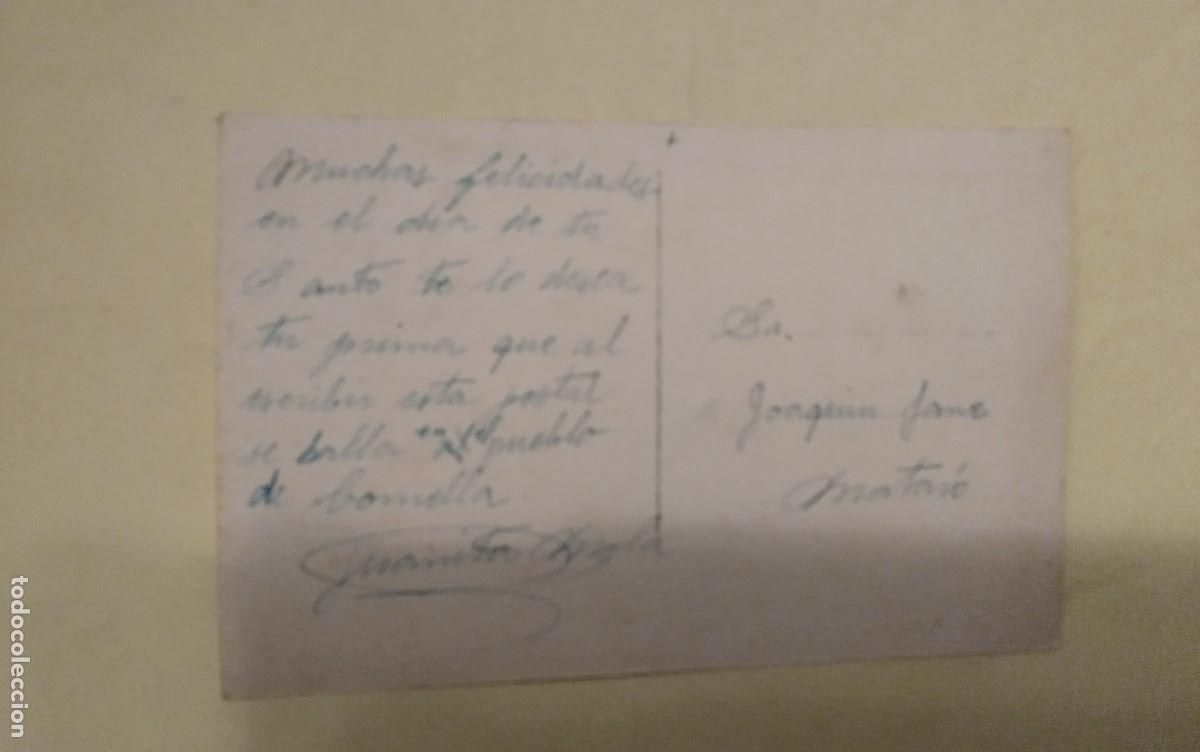 Muchas felicidades
en el dia de tu
Santo te lo desea
tu prima que al
escribir esta postal
se halla en el pueblo
de Cornella.
Juanita
Sa.
Joaquin Jane
Mataró
todocoleccion